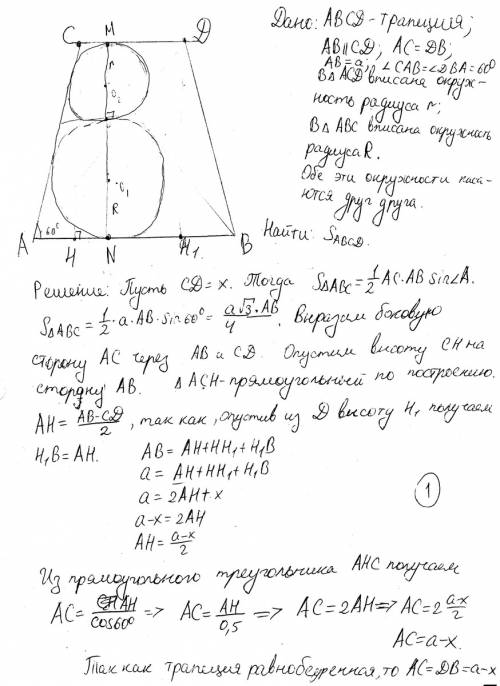 C M D
r
O₂
O₁
R
A 60° H N H₁. B
Дано: ABCD - трапиция;
AB∥CD; AC=DB;
AB=a; ∠CAB=∠DBA=60°
В△ACD вписана окруж-
ность радиуса r;
В△ABC вписана окружность
радиуса R.
Обе эти окружности каса-
ются друг друга.
Найти: S_ABCD.
Решение: Пусть CD=x. Тогда S△ABC=1/2 AC·AB sin∠A.
S△ABC=1/2·a·AB·sin60°=a√3·AB/4. Выразим боковую
сторону AC через AB и CD. Опустим высоту CH на
сторону AB. △ACH-прямоугольный по построению.
AH=AB-CD/2, так как, опустив из D высоту H₁ получаем
H₁B=AH. AB=AH+HH₁+H₁B
a=AH+HH₁+H₁B
a=2AH+x
a-x=2AH
AH=a-x/2
1
Из прямоугольного треугольника AHC получаем
AC=AH/cos60° => AC=AH/0,5 => AC=2AH=>AC=2 a-x/2
AC=a-x.
Так как трапиция равнобедренная, то AC=DB=a-x